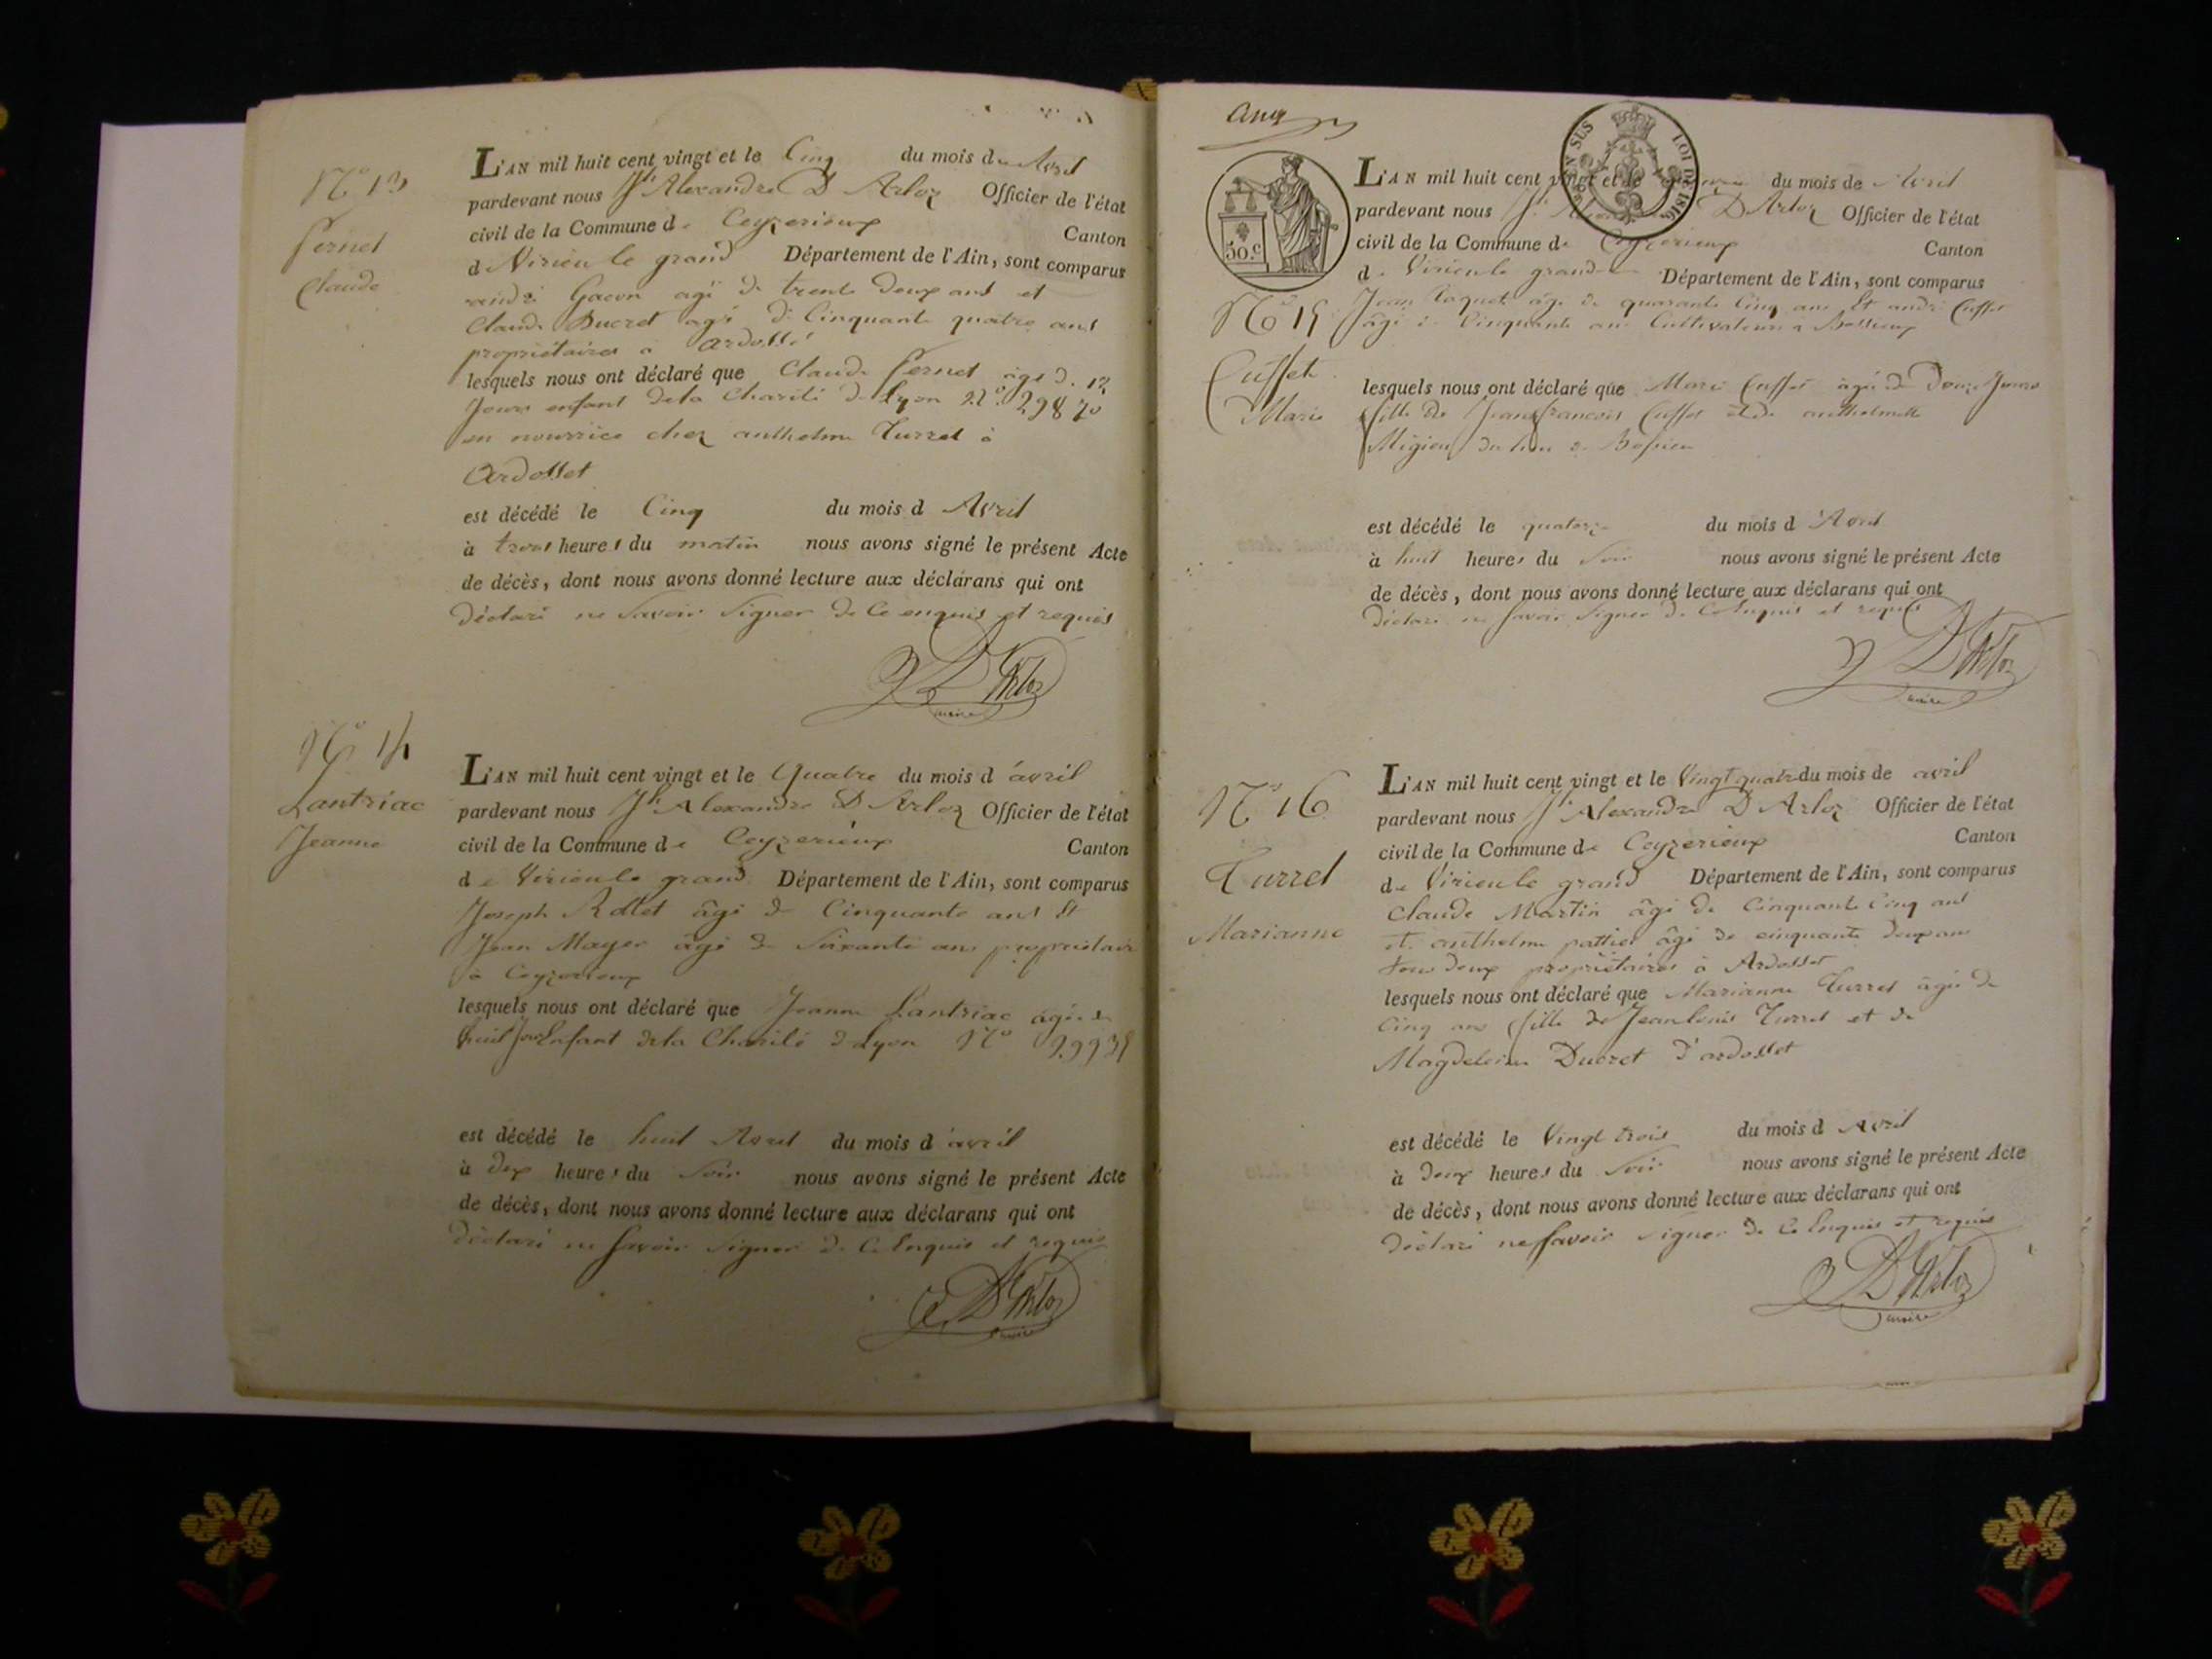 N° 13
Pernet
Claude
L'AN mil huit cent vingt et le Cinq du mois de Avril
pardevant nous Jh Alexandre D Arloz Officier de l'état
civil de la Commune de Ceyzerieux Canton
de Virieu le grand Département de l'Ain, sont comparus
andré Gacon agé de trente deux ans et
Claude Ducret agé de Cinquante quatre ans
propriétaires a ardosset
lesquels nous ont déclaré que Claude Pernet agé d. 12
Jours enfant de la Charité de Lyon N° 29870
en nourrice chez anthelme Turrel à
Ardosset
est décédé le Cinq du mois d Avril
à trois heures du matin nous avons signé le présent Acte
de décès, dont nous avons donné lecture aux déclarans qui ont
déclaré ne Savoir Signer de Ce enquis et requis
D Arloz
maire
N° 14
Lantriac
Jeanne
L'AN mil huit cent vingt et le Quatre du mois d'avril
pardevant nous Jh Alexandre D Arloz Officier de l'état
civil de la Commune de Ceyzerieux Canton
de Virieu le grand Département de l'Ain, sont comparus
Joseph Rollet âgé de Cinquante ans Et
Jean Mayer âgé de Soixante ans propriétaires
a Ceyzerieux
lesquels nous ont déclaré que Jeanne Lantriac agée de
huit Jours Enfant de la Charité de Lyon N°
est décédé le huit Avril du mois d'avril
à dix heures du Soir nous avons signé le présent Acte
de décès, dont nous avons donné lecture aux déclarans qui ont
déclaré ne Savoir Signer de Ce Enquis et requis
D Arloz
maire
TIMB. EN SUS LOI DE 1816.
50.c
N° 15
Cuffet
Marie
L'AN mil huit cent vingt et le du mois de Avril
pardevant nous Jh D Arloz Officier de l'état
civil de la Commune de Ceyzerieux Canton
de Virieu le grand Département de l'Ain, sont comparus
Jean âgé de quarante Cinq ans Et andré Cuffet
âgé de Cinquante ans Cultivateurs a
lesquels nous ont déclaré que Marie Cuffet agée de Jours
fille de Jean francois Cuffet et de anthelmette
Migieu du lieu de
est décédé le quatorze du mois d'Avril
à huit heures du Soir nous avons signé le présent Acte
de décès, dont nous avons donné lecture aux déclarans qui ont
déclaré ne Savoir Signer de Ce Enquis et requis
D Arloz
maire
N° 16
Turrel
Marianne
L'AN mil huit cent vingt et le Vingt quatre du mois de avril
pardevant nous Jh Alexandre D Arloz Officier de l'état
civil de la Commune de Ceyzerieux Canton
de Virieu le grand Département de l'Ain, sont comparus
Claude Martin âgé de Cinquante Cinq ans
et anthelme pattier âgé de cinquante deux ans
tous deux propriétaires à Ardosset
lesquels nous ont déclaré que Marianne Turrel agée de
Cinq ans fille de Jean louis Turrel et de
Magdeleine Ducret d'ardosset
est décédé le Vingt trois du mois d Avril
à deux heures du Soir nous avons signé le présent Acte
de décès, dont nous avons donné lecture aux déclarans qui ont
déclaré ne Savoir Signer de Ce Enquis et requis
D Arloz
maire